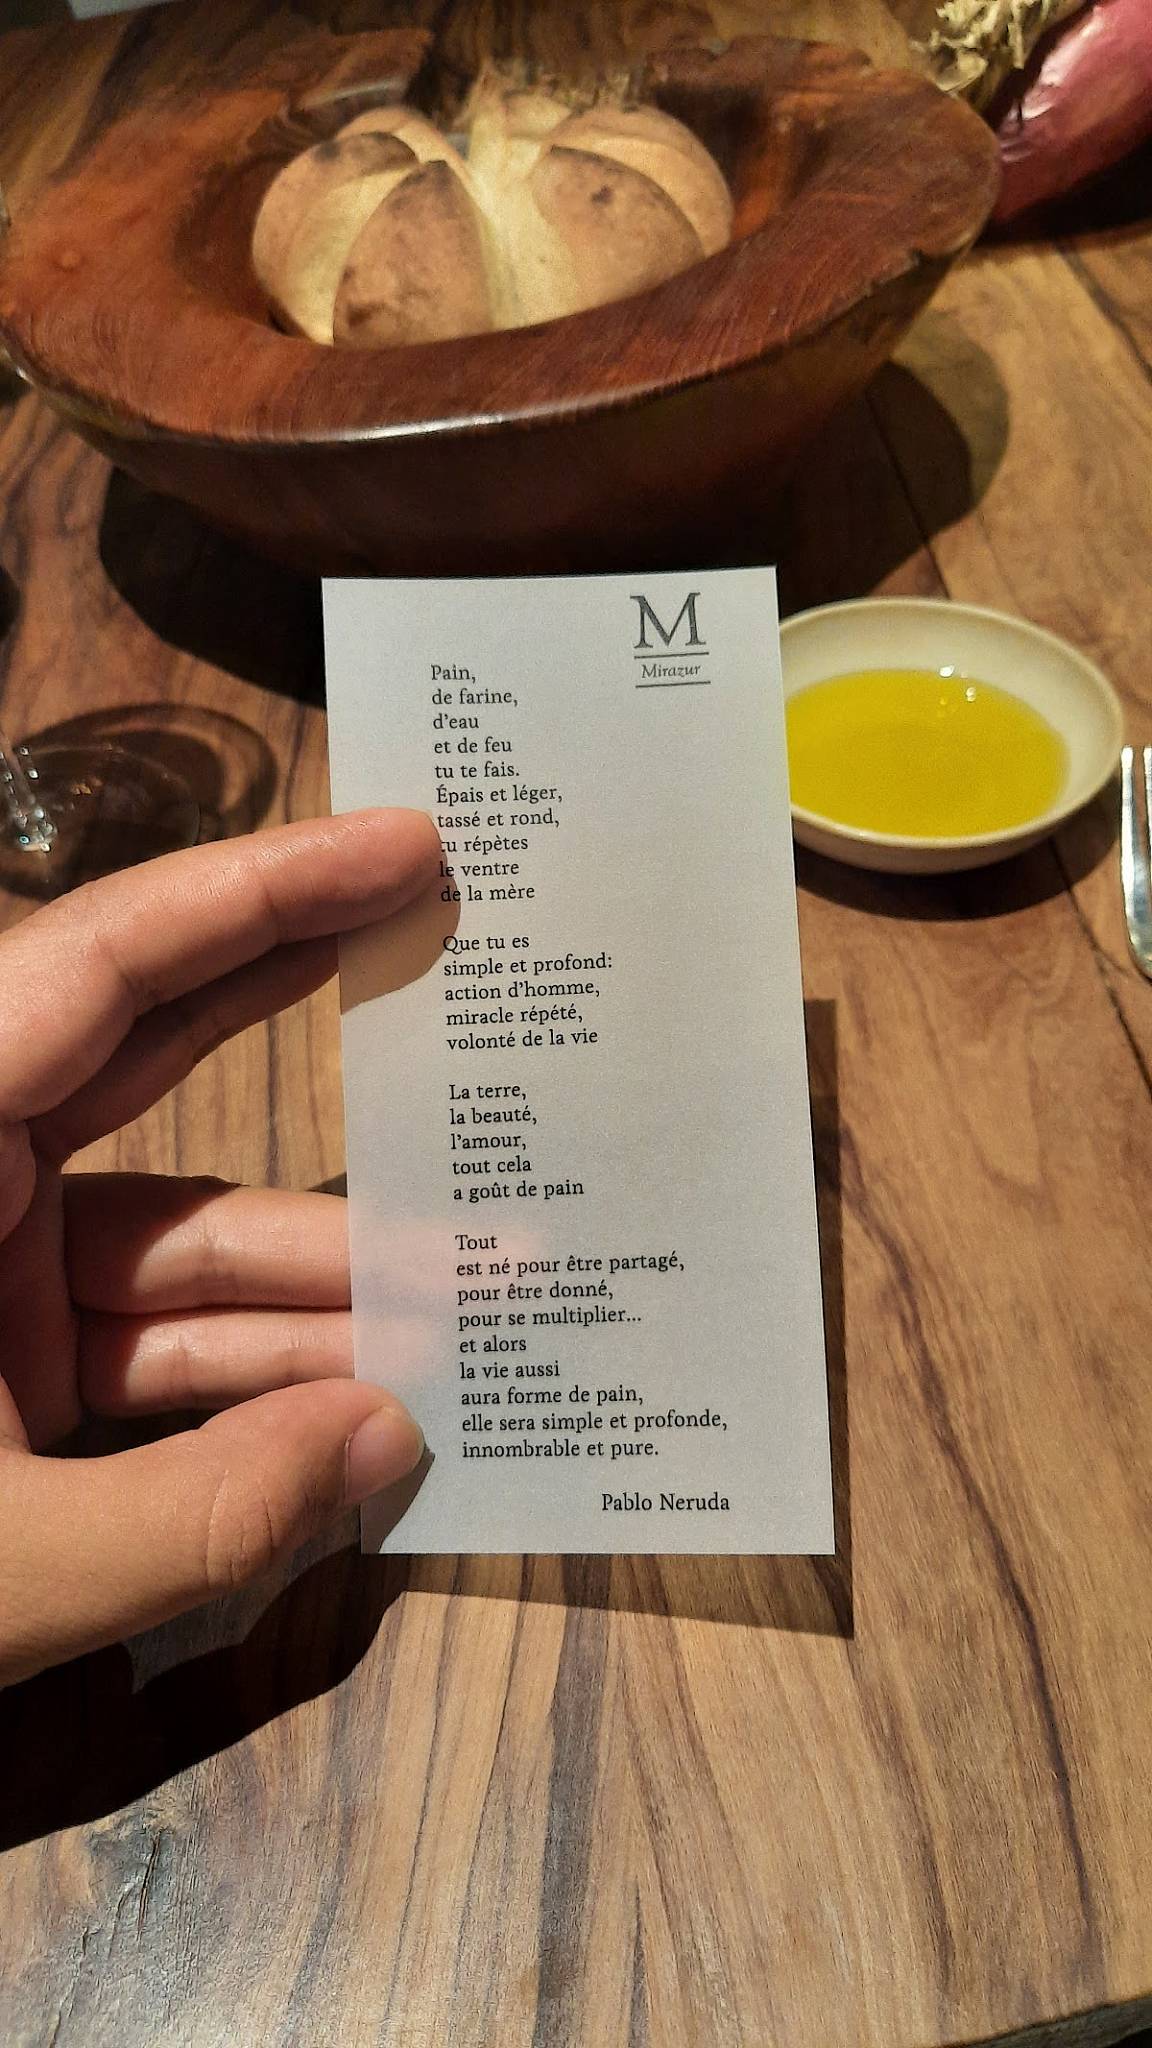 M
Mirazur
Pain,
de farine,
d'eau
et de feu
tu te fais.
Épais et léger,
tassé et rond,
tu répètes
le ventre
de la mère
Que tu es
simple et profond:
action d'homme,
miracle répété,
volonté de la vie
La terre,
la beauté,
l'amour,
tout cela
a goût de pain
Tout
est né pour être partagé,
pour être donné,
pour se multiplier...
et alors
la vie aussi
aura forme de pain,
elle sera simple et profonde,
innombrable et pure.
Pablo Neruda